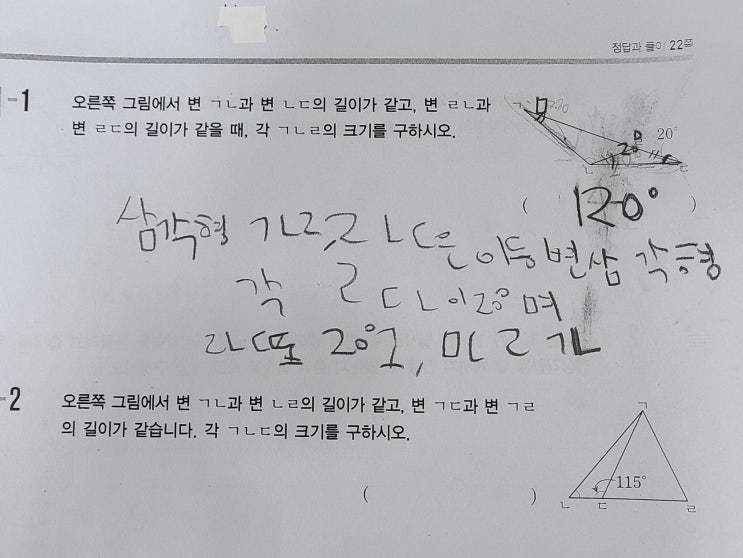 정답과 풀이 22쪽
-1 오른쪽 그림에서 변 ㄱㄴ과 변 ㄴㄷ의 길이가 같고, 변 ㄹㄴ과
변 ㄹㄷ의 길이가 같을 때, 각 ㄱㄴㄹ의 크기를 구하시오.
ㄱ
20°
20
ㄴ ㄷ
( 120° )
삼각형 ㄱㄴㄹ,ㄹㄴㄷ은 이등변삼각형
각 ㄹㄷㄴ이 20°며
ㄹㄴㄷ또 20°고,
-2 오른쪽 그림에서 변 ㄱㄴ과 변 ㄴㄹ의 길이가 같고, 변 ㄱㄷ과 변 ㄱㄹ
의 길이가 같습니다. 각 ㄱㄴㄷ의 크기를 구하시오.
ㄱ
115°
ㄴ ㄷ ㄹ
( )